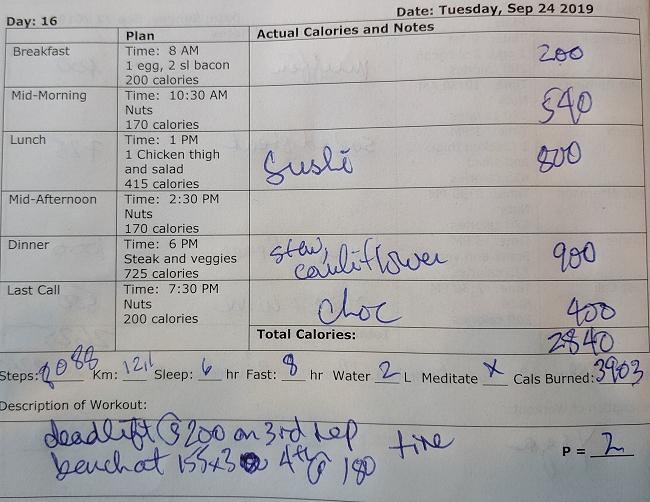 Day: 16 Date: Tuesday, Sep 24 2019
Plan Actual Calories and Notes
Breakfast Time: 8 AM 200
1 egg, 2 sl bacon
200 calories
Mid-Morning Time: 10:30 AM 540
Nuts
170 calories
Lunch Time: 1 PM Sushi 800
1 Chicken thigh
and salad
415 calories
Mid-Afternoon Time: 2:30 PM
Nuts
170 calories
Dinner Time: 6 PM stew, cauliflower 900
Steak and veggies
725 calories
Last Call Time: 7:30 PM choc 400
Nuts
200 calories
Total Calories: 2840
Steps: 8088 Km: 12,1 Sleep: 6 hr Fast: 8 hr Water 2 L Meditate X Cals Burned: 3903
Description of Workout:
deadlift @ 200 on 3rd rep fine
bench at 155x3 4th @ 180
P = 2